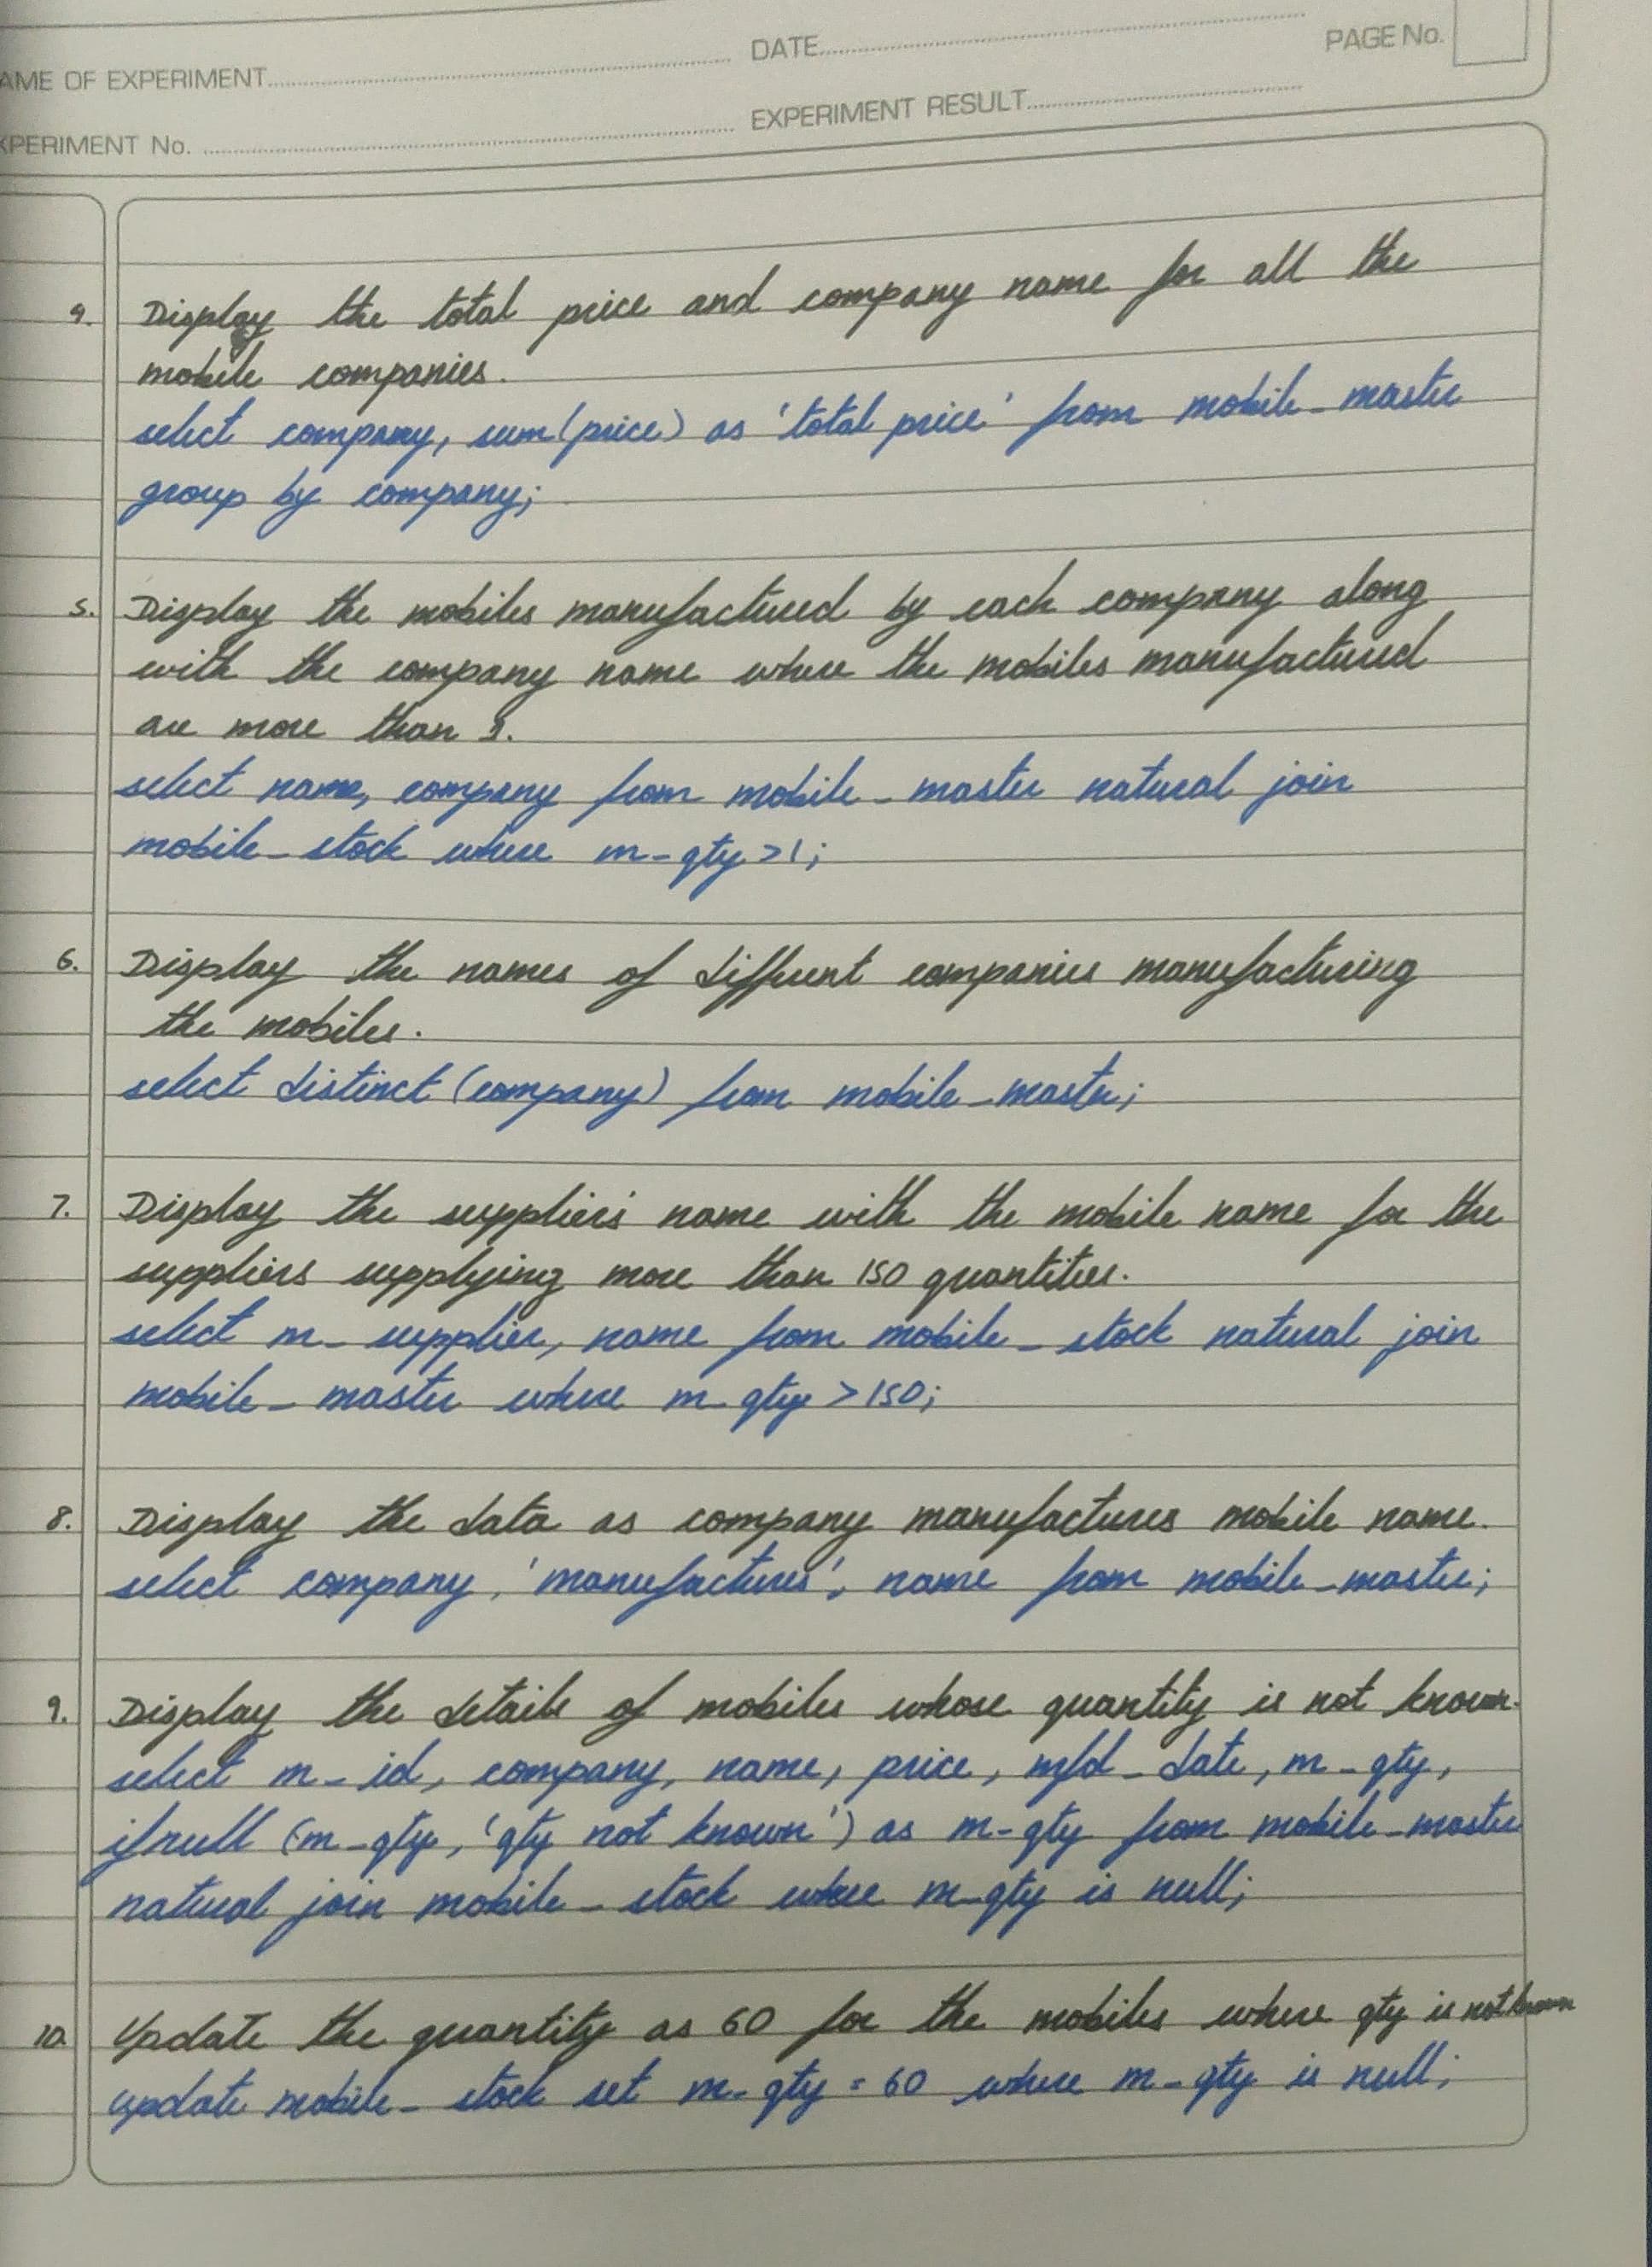 AME OF EXPERIMENT
DATE
PAGE No.
XPERIMENT No.
EXPERIMENT RESULT
4. Display the total price and company name for all the
mobile companies.
select company, sum(price) as 'total price' from mobile_master
group by company;
5. Display the mobiles manufactured by each company along
with the company name where the mobiles manufactured
are more than 1.
select name, company from mobile_master natural join
mobile_stock where m_qty >1;
6. Display the names of different companies manufacturing
the mobiles.
select distinct (company) from mobile_master;
7. Display the supplier's name with the mobile name for the
suppliers supplying more than 150 quantities.
select m_supplier, name from mobile_stock natural join
mobile_master where m_qty >150;
8. Display the data as company manufactures mobile name.
select company, 'manufactures', name from mobile_master;
9. Display the details of mobiles whose quantity is not known.
select m_id, company, name, price, mfd_date, m_qty,
ifnull (m_qty, 'qty not known') as m_qty from mobile_master
natural join mobile_stock where m_qty is null;
10. Update the quantity as 60 for the mobiles where qty is not known
update mobile_stock set m_qty = 60 where m_qty is null;